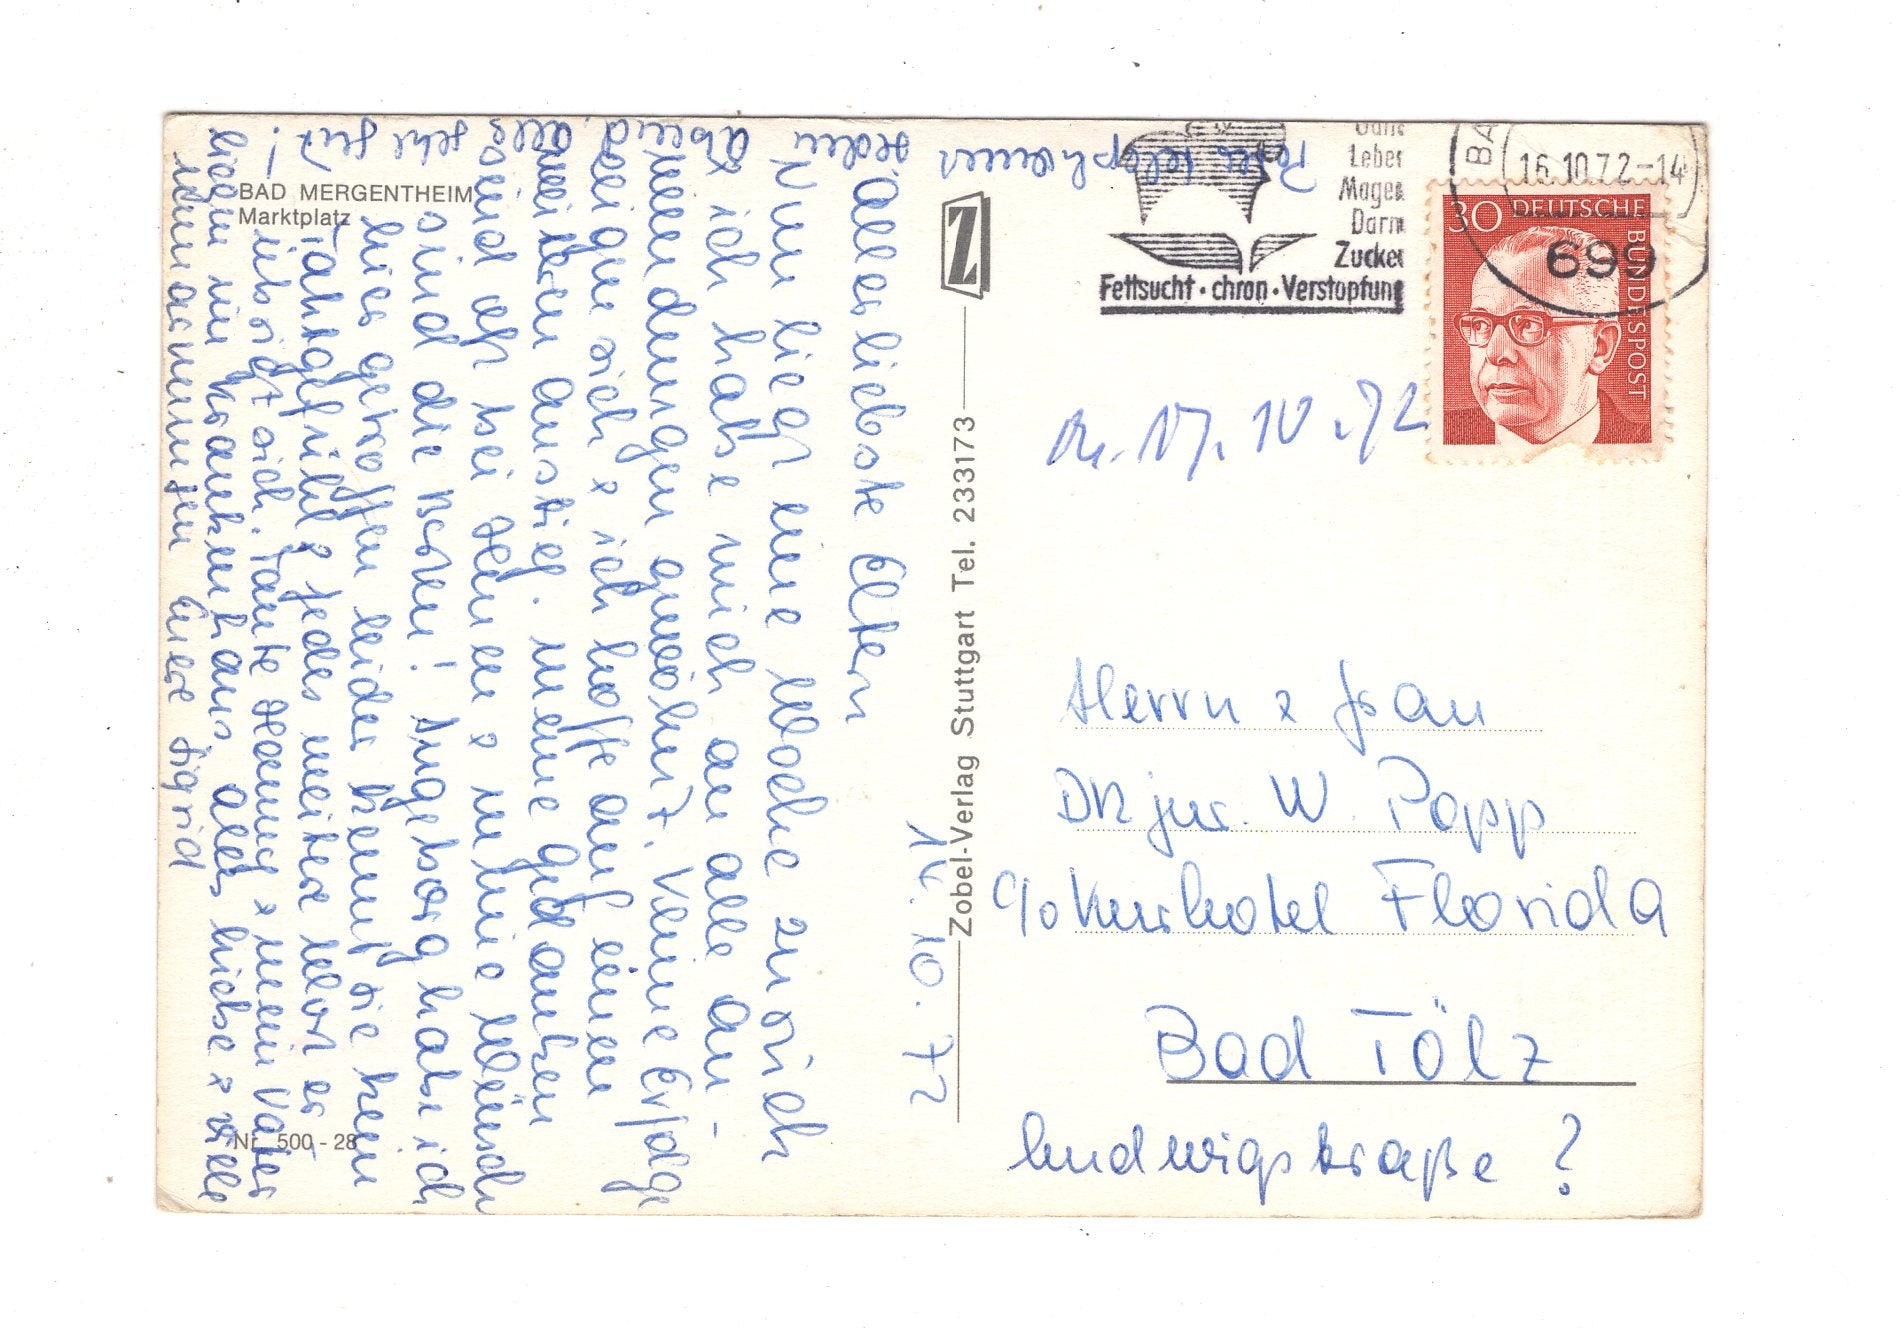 BAD MERGENTHEIM
Marktplatz
14. 10. 72
Allerliebste Eltern
Nun liegt eine Woche zurück
& ich habe mich an alle An-
wendungen gewöhnt. Kleine Erfolge
zeigen sich & ich hoffe auf einen
weiteren Anstieg. Meine Gedanken
sind oft bei Jenen & meine Wünsch
sind die Besten! Ingeborg habe ich
hier getroffen leider kennt sie kein
Taktgefühl jedes weitere Wort er-
übrigt sich. Tante Hanny & mein Vater
liegen im Krankenhaus alles Liebe & viele
Umarmungen Eure Sigrid
telephonier jeden Abend. alles geht gut!
Nr. 500 - 28
Z
Zobel-Verlag Stuttgart Tel. 233173
Leber
Magen
Darm
Zucker
Fettsucht · chron · Verstopfung
BA
16.10.72-14
699
30 DEUTSCHE BUNDESPOST
17. 10. 72
Herrn & Frau
DR jur. W. Popp
c/o Kurhotel Florida
Bad Tölz
Ludwigstraße ?